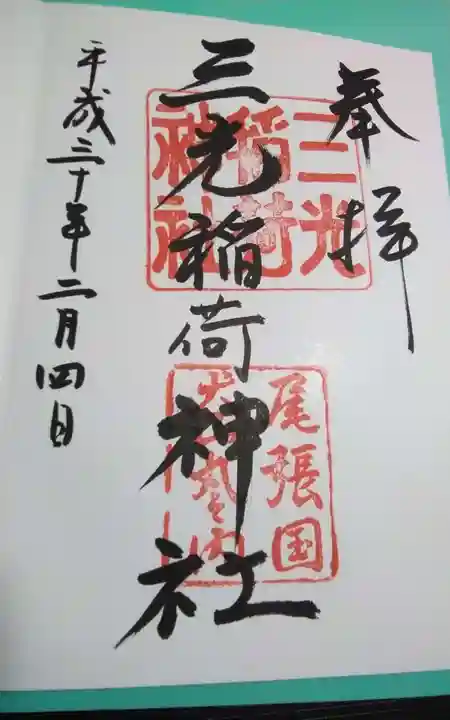 奉拝
三光稲荷神社
平成三十年二月四日
三光
稲荷
神社
尾張国
犬山